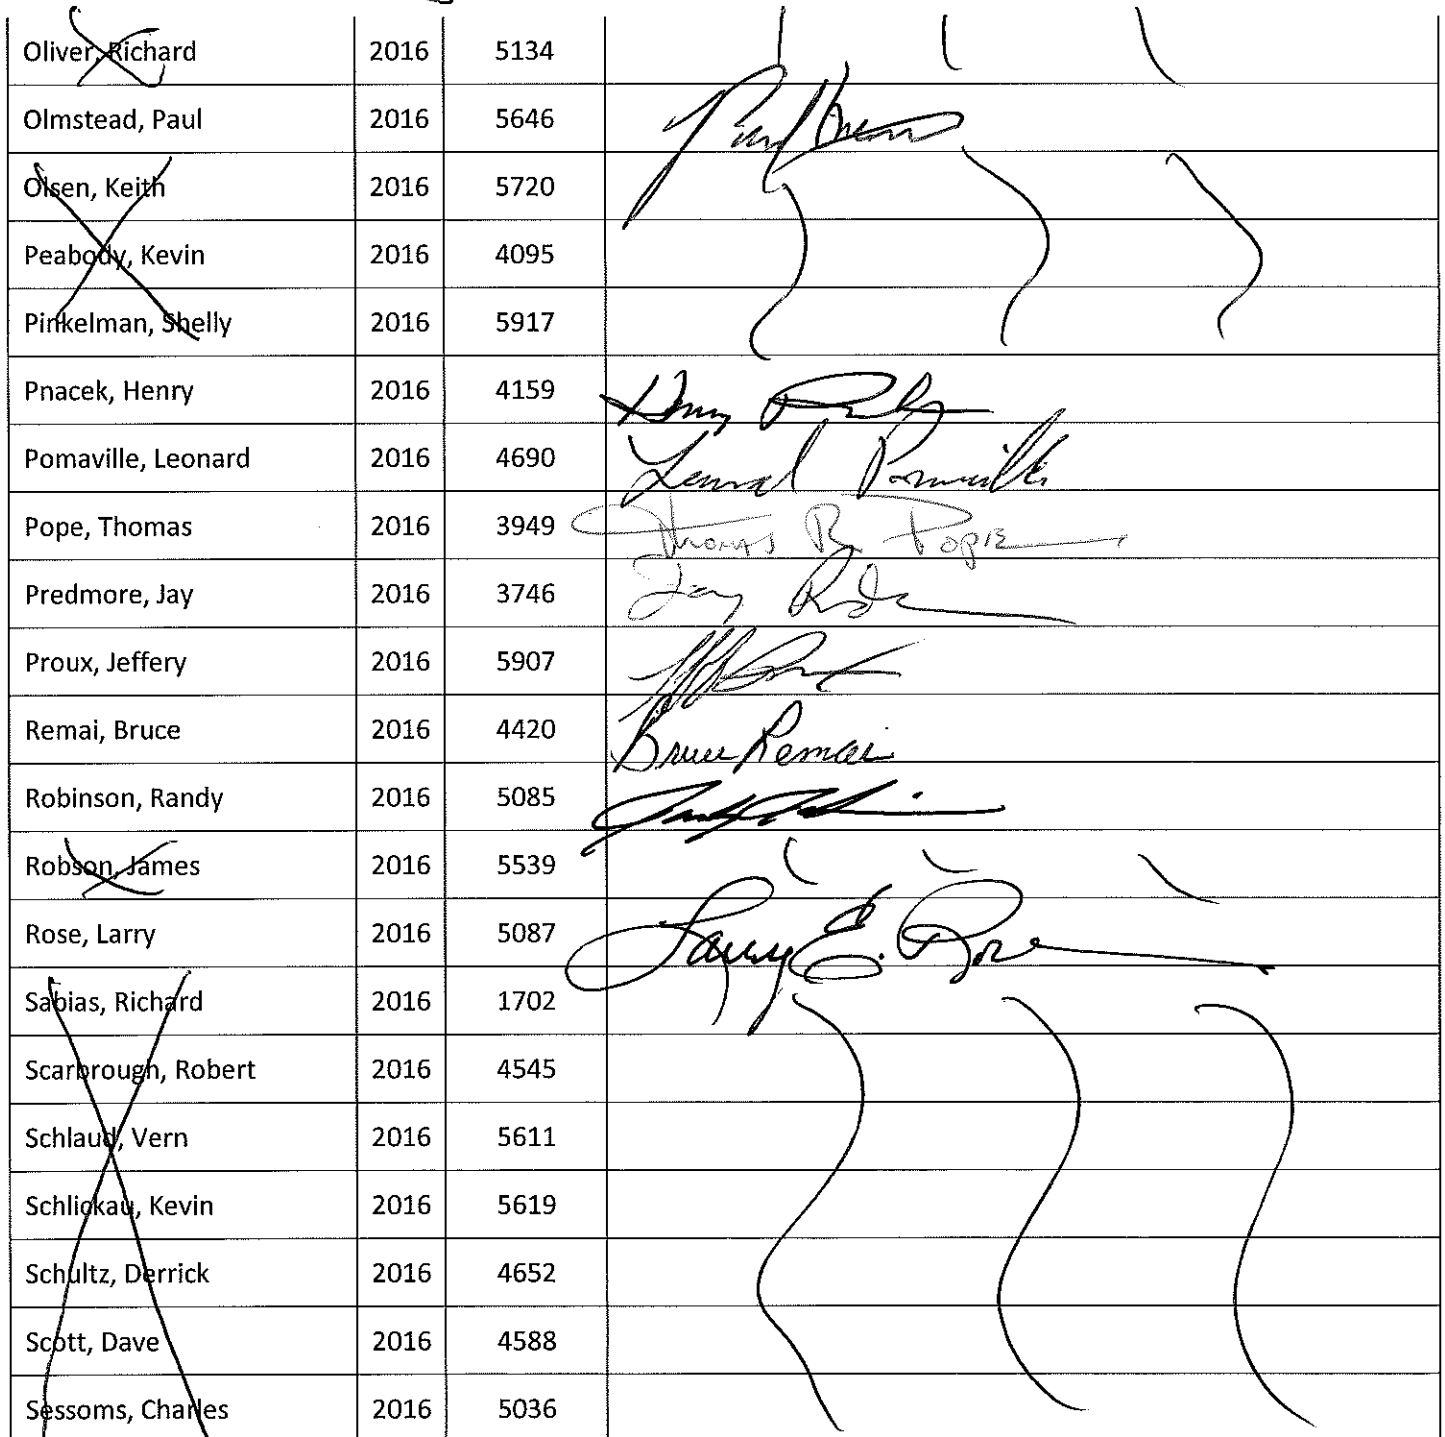 Oliver, Richard 2016 5134
Olmstead, Paul 2016 5646
Olsen, Keith 2016 5720
Peabody, Kevin 2016 4095
Pinkelman, Shelly 2016 5917
Pnacek, Henry 2016 4159 Henry
Pomaville, Leonard 2016 4690 Leonard Pomaville
Pope, Thomas 2016 3949 Thomas R. Pope
Predmore, Jay 2016 3746 Jay
Proux, Jeffery 2016 5907
Remai, Bruce 2016 4420 Bruce Remai
Robinson, Randy 2016 5085
Robson, James 2016 5539
Rose, Larry 2016 5087 Larry E. Rose
Sabias, Richard 2016 1702
Scarbrough, Robert 2016 4545
Schlaud, Vern 2016 5611
Schlickau, Kevin 2016 5619
Schultz, Derrick 2016 4652
Scott, Dave 2016 4588
Sessoms, Charles 2016 5036